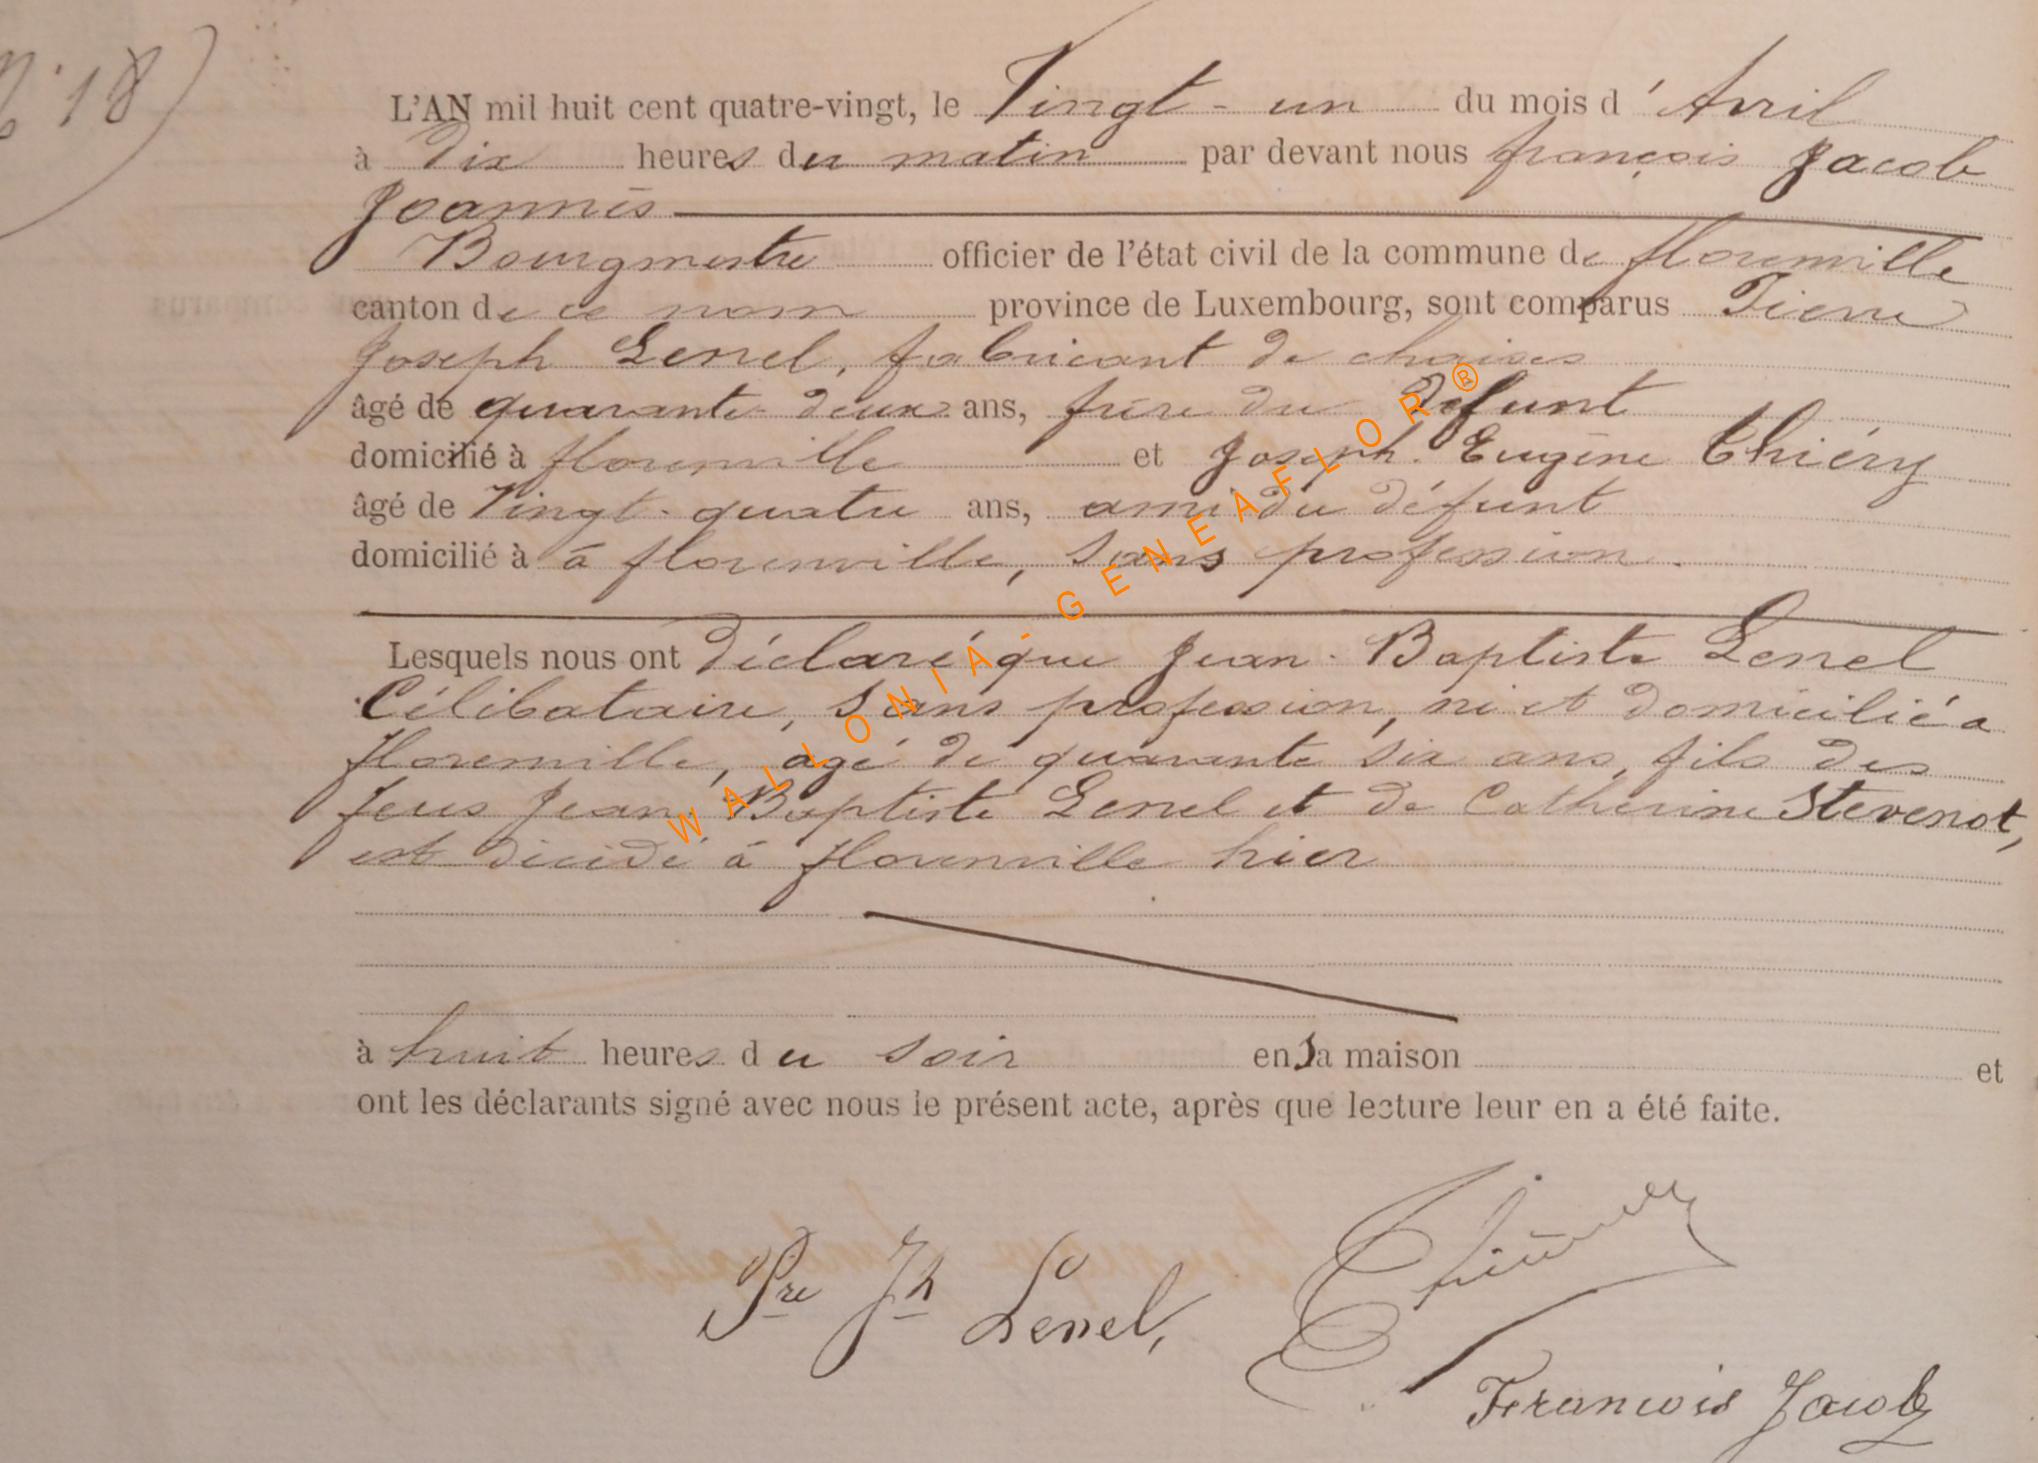 N° 18)
L'AN mil huit cent quatre-vingt, le Vingt-un du mois d'Avril
à Dix heures du matin par devant nous françois Jacob
Joannès
Bourgmestre officier de l'état civil de la commune de florenville
canton de ce nom province de Luxembourg, sont comparus Pierre
Joseph Lenel, fabricant de chaises
âgé de quarante-deux ans, frère du défunt
domicilié à florenville et Joseph Eugène Thiéry
âgé de Vingt-quatre ans, ami du défunt
domicilié à à florenville, sans profession.
Lesquels nous ont Déclaré que Jean-Baptiste Lenel
Célibataire, sans profession, né et domicilié à
florenville, âgé de quarante six ans, fils des
feus Jean Baptiste Lenel et de Catherine Stevenot,
est décédé à florenville hier
à huit heures du soir en sa maison et
ont les déclarants signé avec nous le présent acte, après que lecture leur en a été faite.
Pre Jh Lenel,
Thiéry
Francois Jacob
WALLONIA-GENEAFLOR®